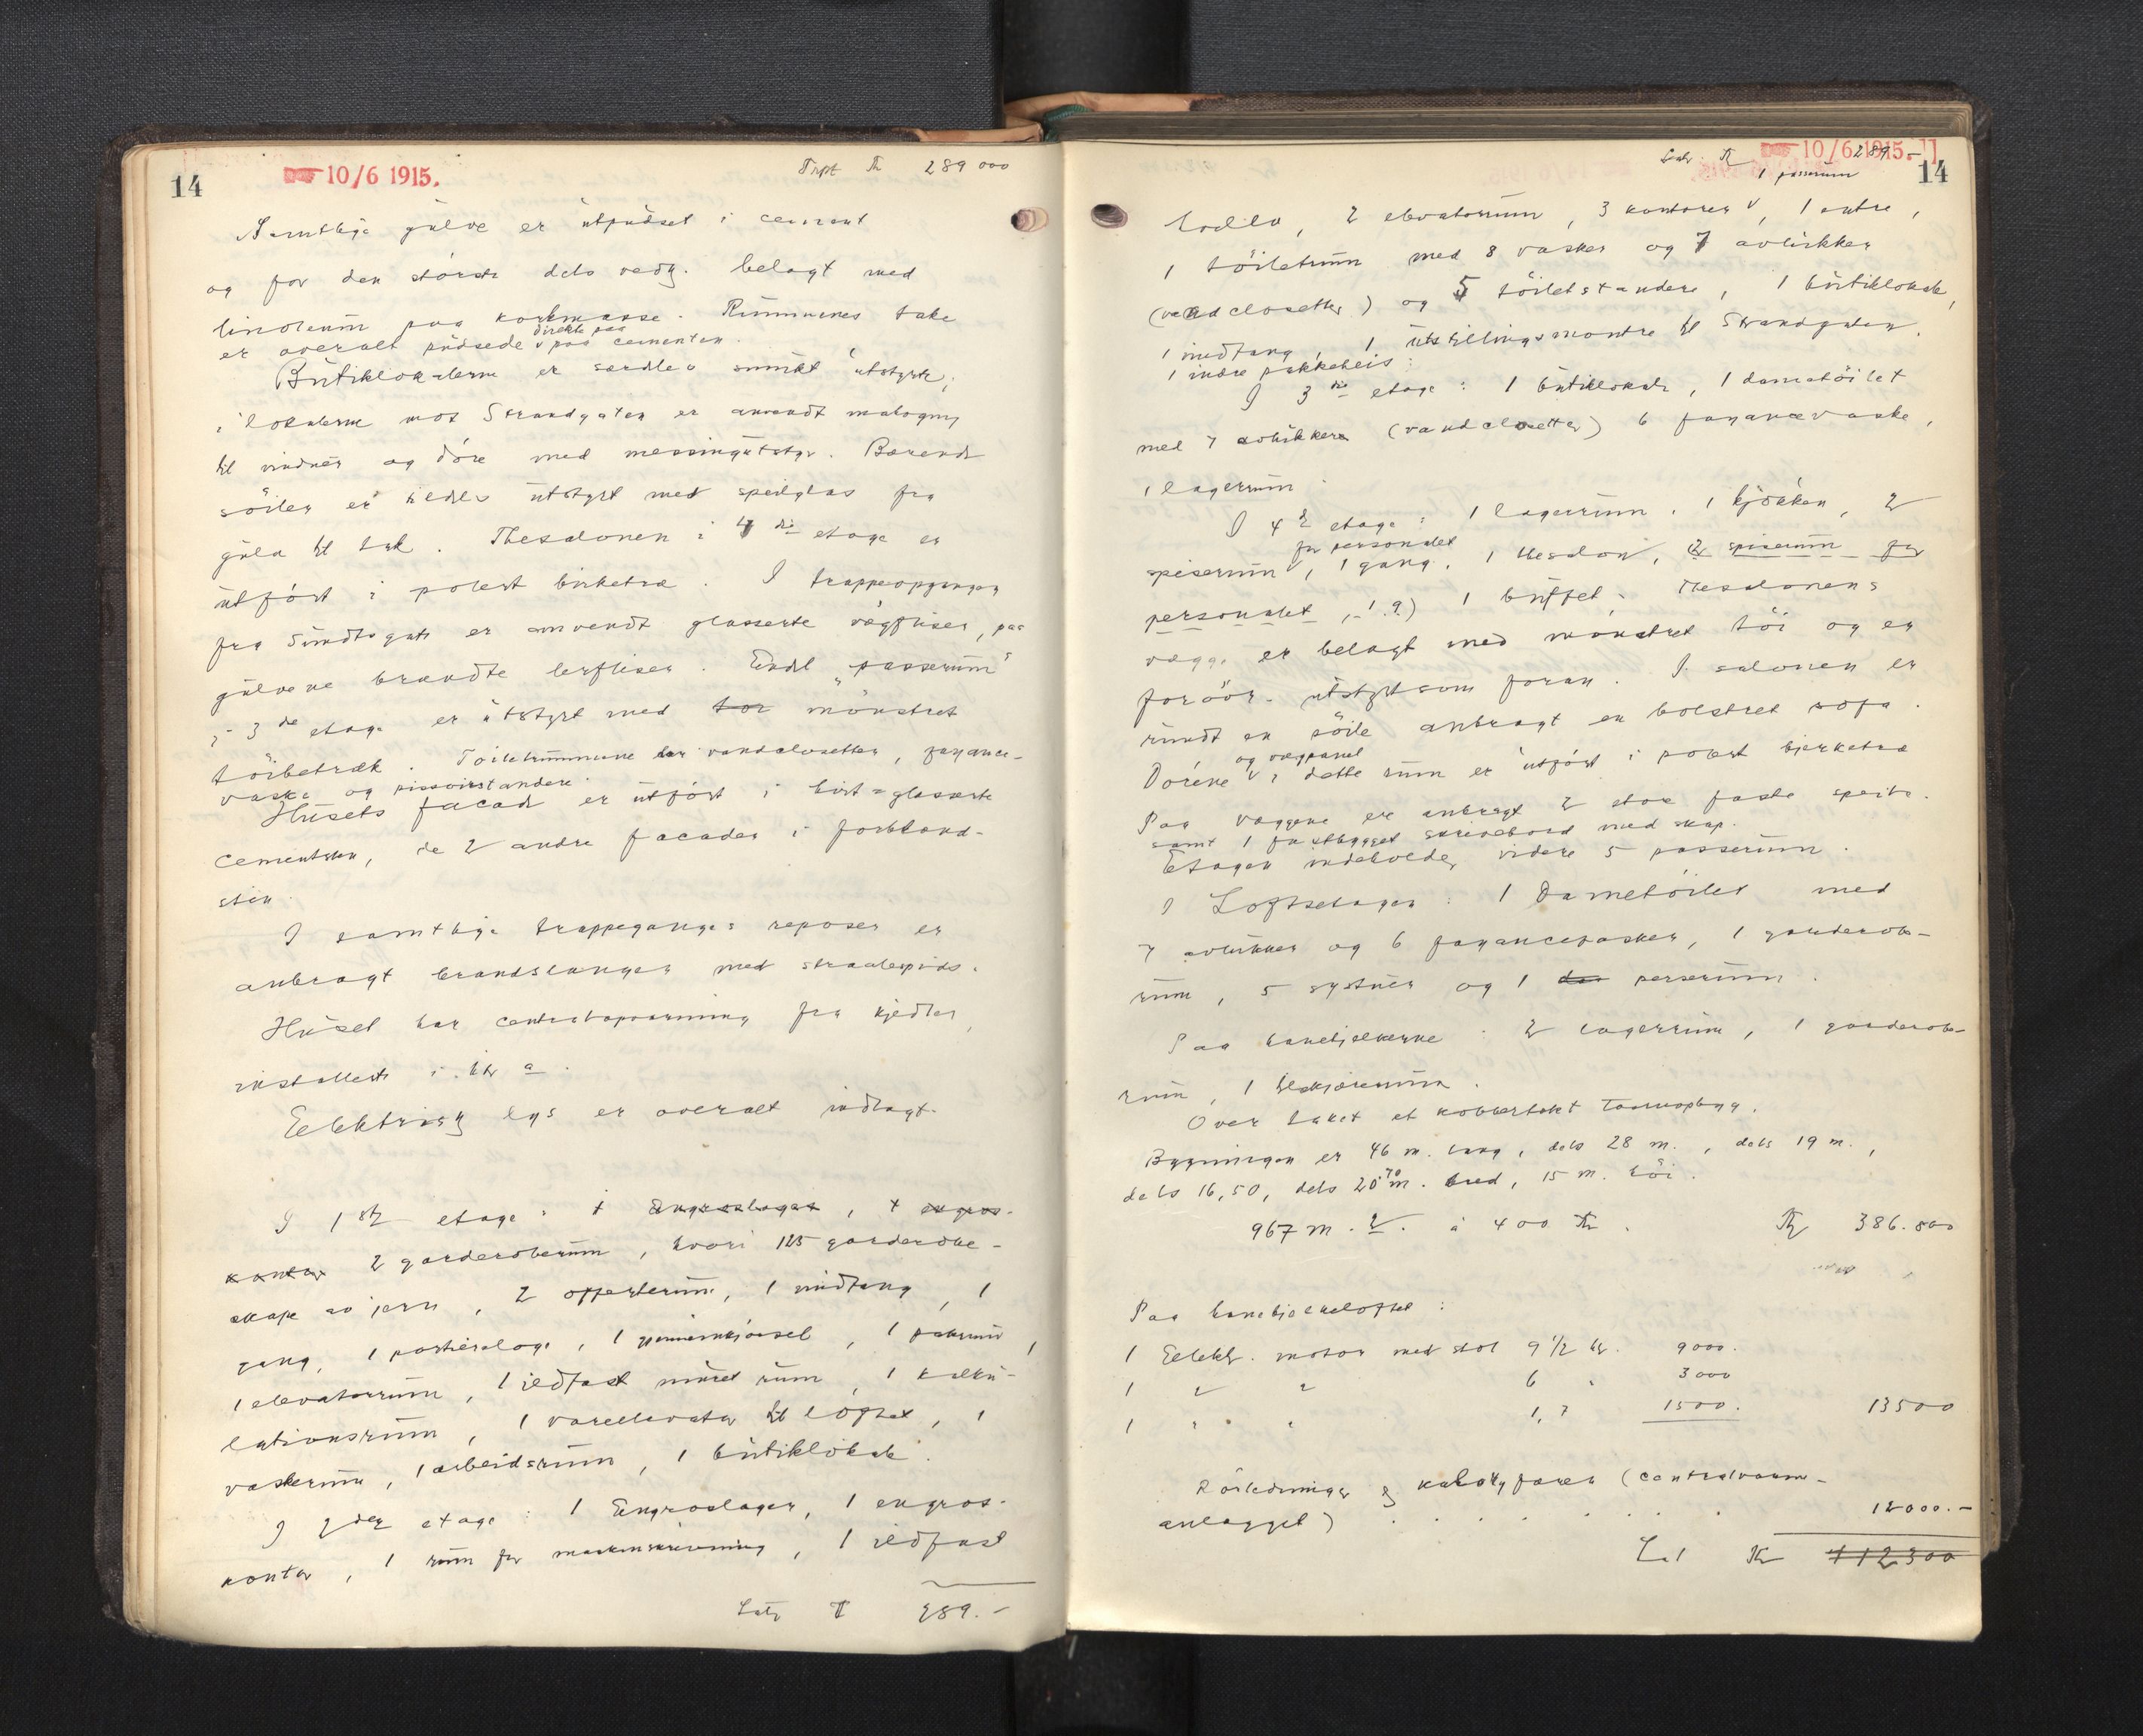 14
10/6 1915.
Trpt Kr 289 000
Samtlige gulve er utpudset i cement
og for den störste dels vedk. belagt med
linoleum paa korkmasse. Rummenes take
er overalt pudsede direkte paa cementen.
Butiklokalerne er særdeles smukt utstyrt;
i lokalerne mot Strandgaten er anvendt mahogny
til vinduer og döre med messingutstyr. Bærende
söiler er tildels utstyrt med speilglas fra
gulv til tak. Thesalonen i 4 de etage er
utfört i polert birketræ. I trappeopgangen
fra Sundtsgate er anvendt glasserte vægfliser, paa
gulvene brændte lerfliser. Endel "passerum"
i 3 de etage er utstyrt med tör mönstret
töibetræk. Toiletrummene har vandclosetter, fayance-
vaske og pissoirstandere.
Husets facade er utfört i hvit-glasserte
cementsten, de 2 andre facader i forbland-
sten.
I samtlige trappeganges reposer er
anbragt brandslanger med straalespids.
Huset har centralopvarming fra kjedler,
installert i litr a.
Eelektrisk lys er overalt indlagt.
I 1ste etage: 1 Engroslager, 1 engros-
kontor 2 garderoberum, hvori 125 garderobe-
skape av jern, 2 opperterum, 1 vindfang, 1
gang, 1 portierloge, 1 gjennemkjörsel, 1 pakrum,
1 elevatorrum, 1 ildfast muret rum, 1 kalku-
lationsrum, 1 vareelevator til loftet, 1
vaskerum, 1 arbeidsrum, 1 butiklokale.
I 2den etage: 1 Engroslager, 1 engros-
kontor, 1 rum for maskinskrivning, 1 ildfast
Lats Kr 289.-
10/6 1915.
14
Lats. Kr 289 -
1 passerum
hvelv, 2 elevatorrum, 3 kontorer, 1 entre,
1 töiletrum med 8 vasker og 7 avlukker
(vandclosetter) og 5 töiletstandere, 1 butiklokale,
1 vindfang, 1 utstillingsmontre til Strandgaten.
1 indre pakkeheis.
I 3 die etage: 1 butiklokale, 1 dametöilet
med 7 avlukkere (vandclosetter) 6 fayancevaske,
1 lagerrum.
I 4 de etage: 1 lagerrum, 1 kjökken, 2
spiserum for personalet, 1 gang, 1 thesalon, 2 spiserum for
personalet, 1 buffet. Thesalonens
vægge er belagt med mönstret töi og er
forövr. utstyrt som foran. I salonen er
rundt en söile anbragt en bolstret sofa.
Dörene og vægpanel i dette rum er utfört i polert bjerketræ
Paa væggene er anbragt 2 store faste speile.
samt 1 fastbygget skrivebord med skap.
Etagen indeholder videre 5 passerum.
I Loftsetagen: 1 Dametöilet med
7 avlukker og 6 fayancevasker, 1 garderobe-
rum, 5 systuer og 1 passerum.
Paa hanebjelkerne: 2 lagerrum, 1 garderobe-
rum, 1 tilskjærerrum.
Over taket et kobbertækt Taarnopbyg.
Bygningen er 46 m. lang, dels 28 m., dels 19 m.,
dels 16,50, dels 20.70 m. bred, 15 m. höi.
967 m. 2. á 400 Kr. Kr 386.800
Paa hanebjelkeloftet:
1 Eelektr. motor med stol 9 1/2 hk. 9000.
1 " " 6 " 3000
1 " " 1,7 1500. 13500
Rörledninger og kaloriferer (centralvarme-
anlægget) . . . . . . . 12000.-
Lat Kr 412300